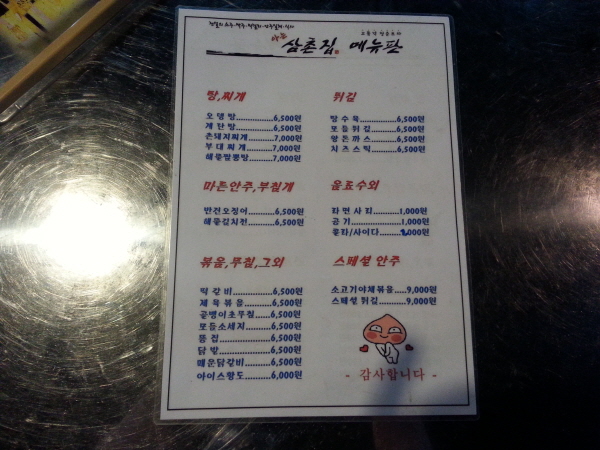 삼촌집 메뉴판
탕,찌개
오뎅탕..........6,500원
계란탕..........6,500원
촌돼지찌개.......7,000원
부대찌개.........7,000원
해물짬뽕탕.......7,000원
튀김
탕수육..........6,500원
모듬튀김.........6,500원
왕돈까스.........6,500원
치즈스틱.........6,500원
마른안주,부침개
반건오징어.......6,500원
해물김치전.......6,500원
음료수외
라면사리.........1,000원
공기............1,000원
콜라/사이다
볶음,무침,그외
떡갈비..........6,500원
제육볶음.........6,500원
골뱅이초무침......6,500원
모듬소세지.......6,500원
똥집............6,500원
닭발............6,500원
매운닭갈비.......6,500원
아이스황도.......6,000원
스페셜 안주
소고기야채볶음.....9,000원
스페셜튀김........9,000원
- 감사합니다 -